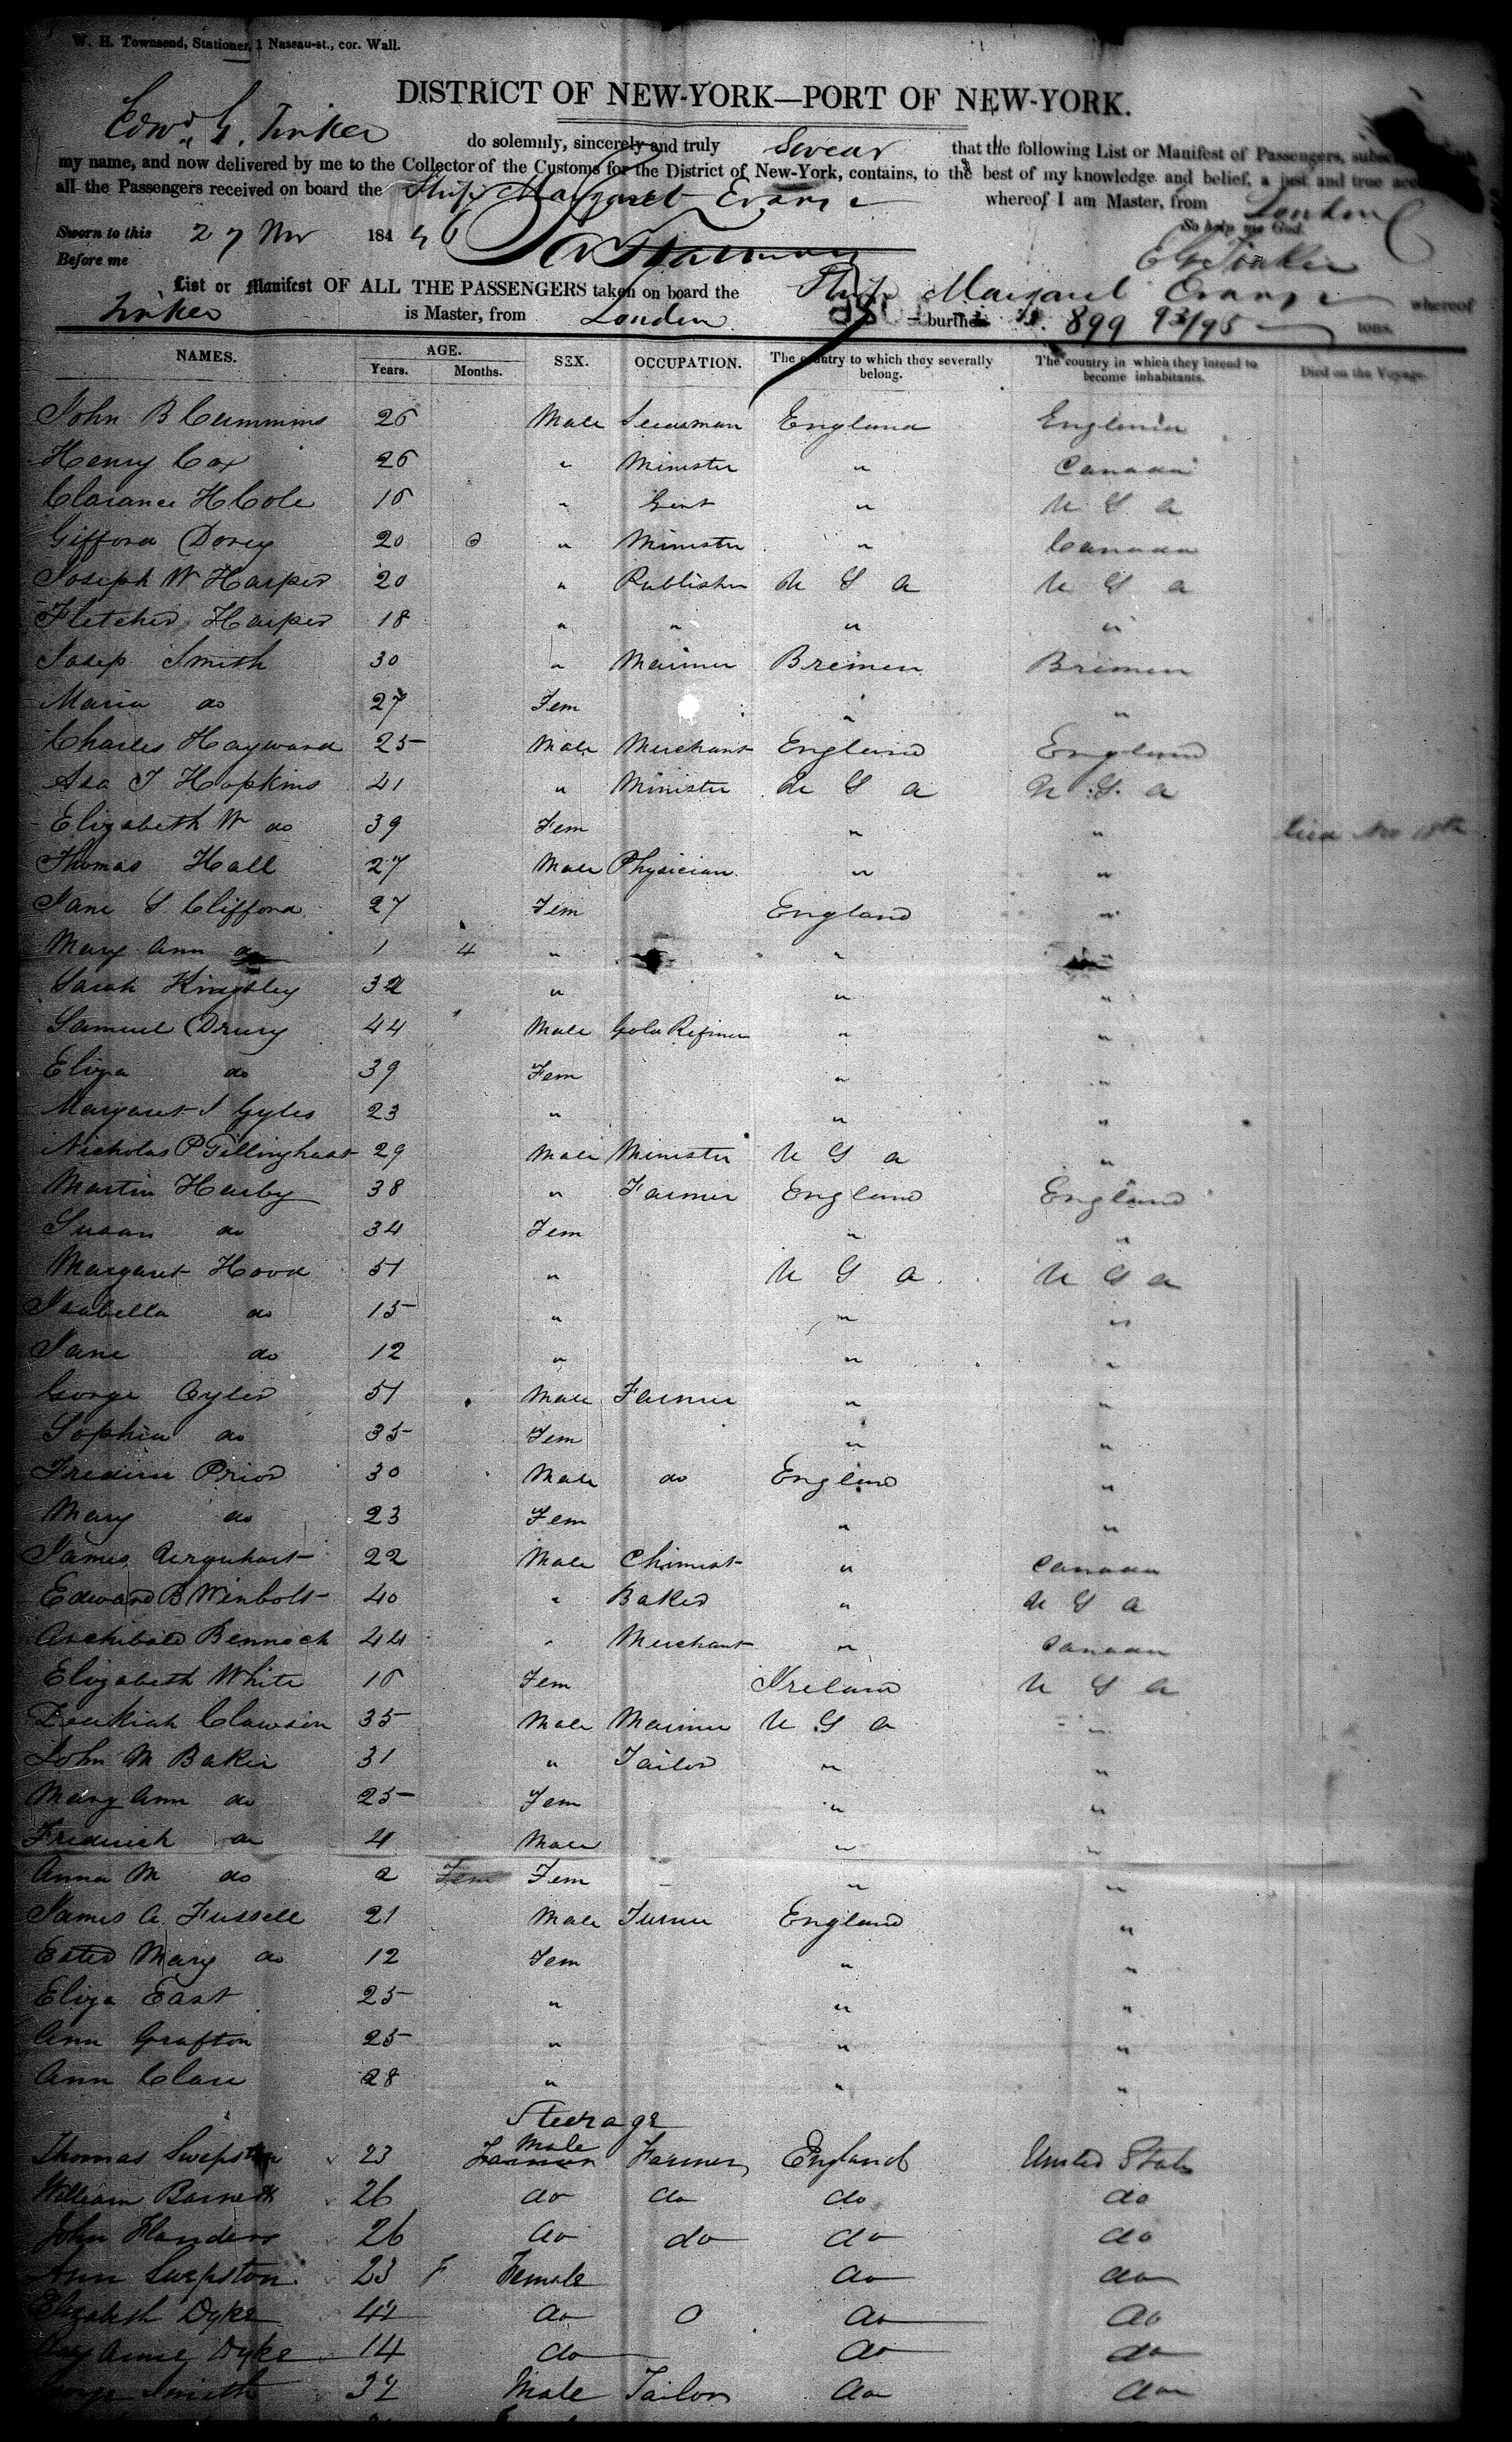 W. H. Townsend, Stationer, 1 Nassau-st., cor. Wall.
DISTRICT OF NEW-YORK—PORT OF NEW-YORK.
Edwd G. Tinker do solemnly, sincerely and truly Swear that the following List or Manifest of Passengers,
my name, and now delivered by me to the Collector of the Customs for the District of New-York, contains, to the best of my knowledge and belief, a just and true
all the Passengers received on board the Ship Margaret Evans whereof I am Master, from London
Sworn to this 27 Nov 1846 So help me God.
Before me E G Tinker
List or Manifest OF ALL THE PASSENGERS taken on board the Ship Margaret Evans whereof
Tinker is Master, from London burthen 899 93/95 tons.
NAMES. AGE. Years. Months. SEX. OCCUPATION. The country to which they severally belong. The country in which they intend to become inhabitants. Died on the Voyage.
John B Cummins 26 Male England England
Henry Cox 26 " Minister " Canada
Clarance H Cole 16 " Gent " U S A
Gifford Dorey 20 " Minister " Canada
Joseph W Harper 20 " Publisher U S A U S A
Fletcher Harper 18 " " " "
Josep Smith 30 " Mariner Bremen Bremen
Maria do 27 Fem " "
Charles Hayward 25 Male Merchant England England
Asa T Hopkins 41 " Minister U S A U S A
Elizabeth W do 39 Fem " " died Nov
Thomas Hall 27 Male Physician " "
Jane S Clifford 27 Fem England "
Mary Ann do 1 4 " " "
Sarah Kingsley 32 " " "
Samuel Drury 44 Male Gold Refiner " "
Eliza do 39 Fem " "
Margaret J Gyles 23 " " "
Nicholas P Tillinghast 29 Male Minister U S A "
Martin Harby 38 " Farmer England England
Susan do 34 Fem " "
Margaret Hood 51 " U S A U S A
Isabella do 15 " " "
Jane do 12 " " "
George Cyler 51 Male Farmer " "
Sophia do 35 Fem " "
Prior 30 Male do England "
Mary do 23 Fem " "
James Urquhart 22 Male Chimist " Canada
Edward B Winbolt 40 " Baker " U S A
Archibald Bennoch 44 " Merchant " Canada
Elizabeth White 16 Fem Ireland U S A
Clawson 35 Male Mariner U S A "
John M Baker 31 " Tailor " "
Mary Ann do 25 Fem " "
Frederick do 4 Male " "
Anna M do 2 Fem Fem " "
James A Fussell 21 Male Turner England "
Ester Mary do 12 Fem " "
Eliza East 25 " " "
Ann Grafton 25 " " "
Ann Clare 28 " " "
Steerage
Thomas Swepston 23 Male Farmer England United States
William Barnett 26 do do do do
John Flanders 26 do do do do
Ann Swepston 23 F Female do do
Elizabeth Dyke 42 do O do do
Annie Dyke 14 do do do
George Smith 32 Male Tailor do do